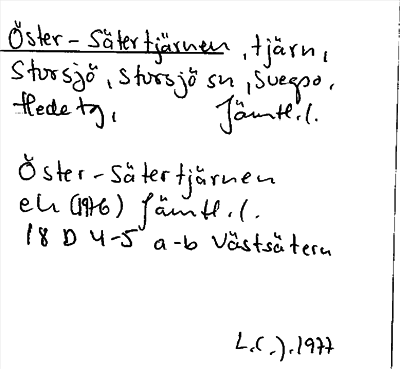 Öster-Sätertjärnen, tjärn,
Storsjö, Storsjö sn, Svegso,
Hede tg, Jämtl.l.
Öster-Sätertjärnen
ek (1976) Jämtl.l.
18 D 4-5 a-b Västsätern
L.C.J. 1977